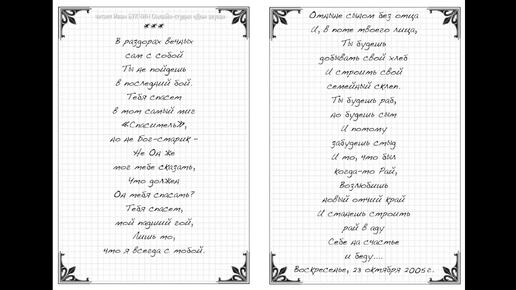 ***
В раздорах вечных
сам с собой
Ты не пойдёшь
в последний бой.
Тебя спасет
в тот самый миг
«Спаситель»,
но не Бог-старик –
Не Он же
мог тебе сказать,
Что должен
Он тебя спасать?
Тебя спасет,
мой падший гой,
Лишь то,
что я всегда с тобой.
Отныне сыном без отца
И, в поте твоего лица,
Ты будешь
добывать свой хлеб
И строить свой
семейный склеп.
Ты будешь раб,
но будешь сыт
И потому
забудешь стыд
И то, что был
когда-то Рай,
Возлюбишь
новый отчий край
И станешь строить
рай в аду
Себе на счастье
и беду....
Воскресенье, 23 октября 2005г.